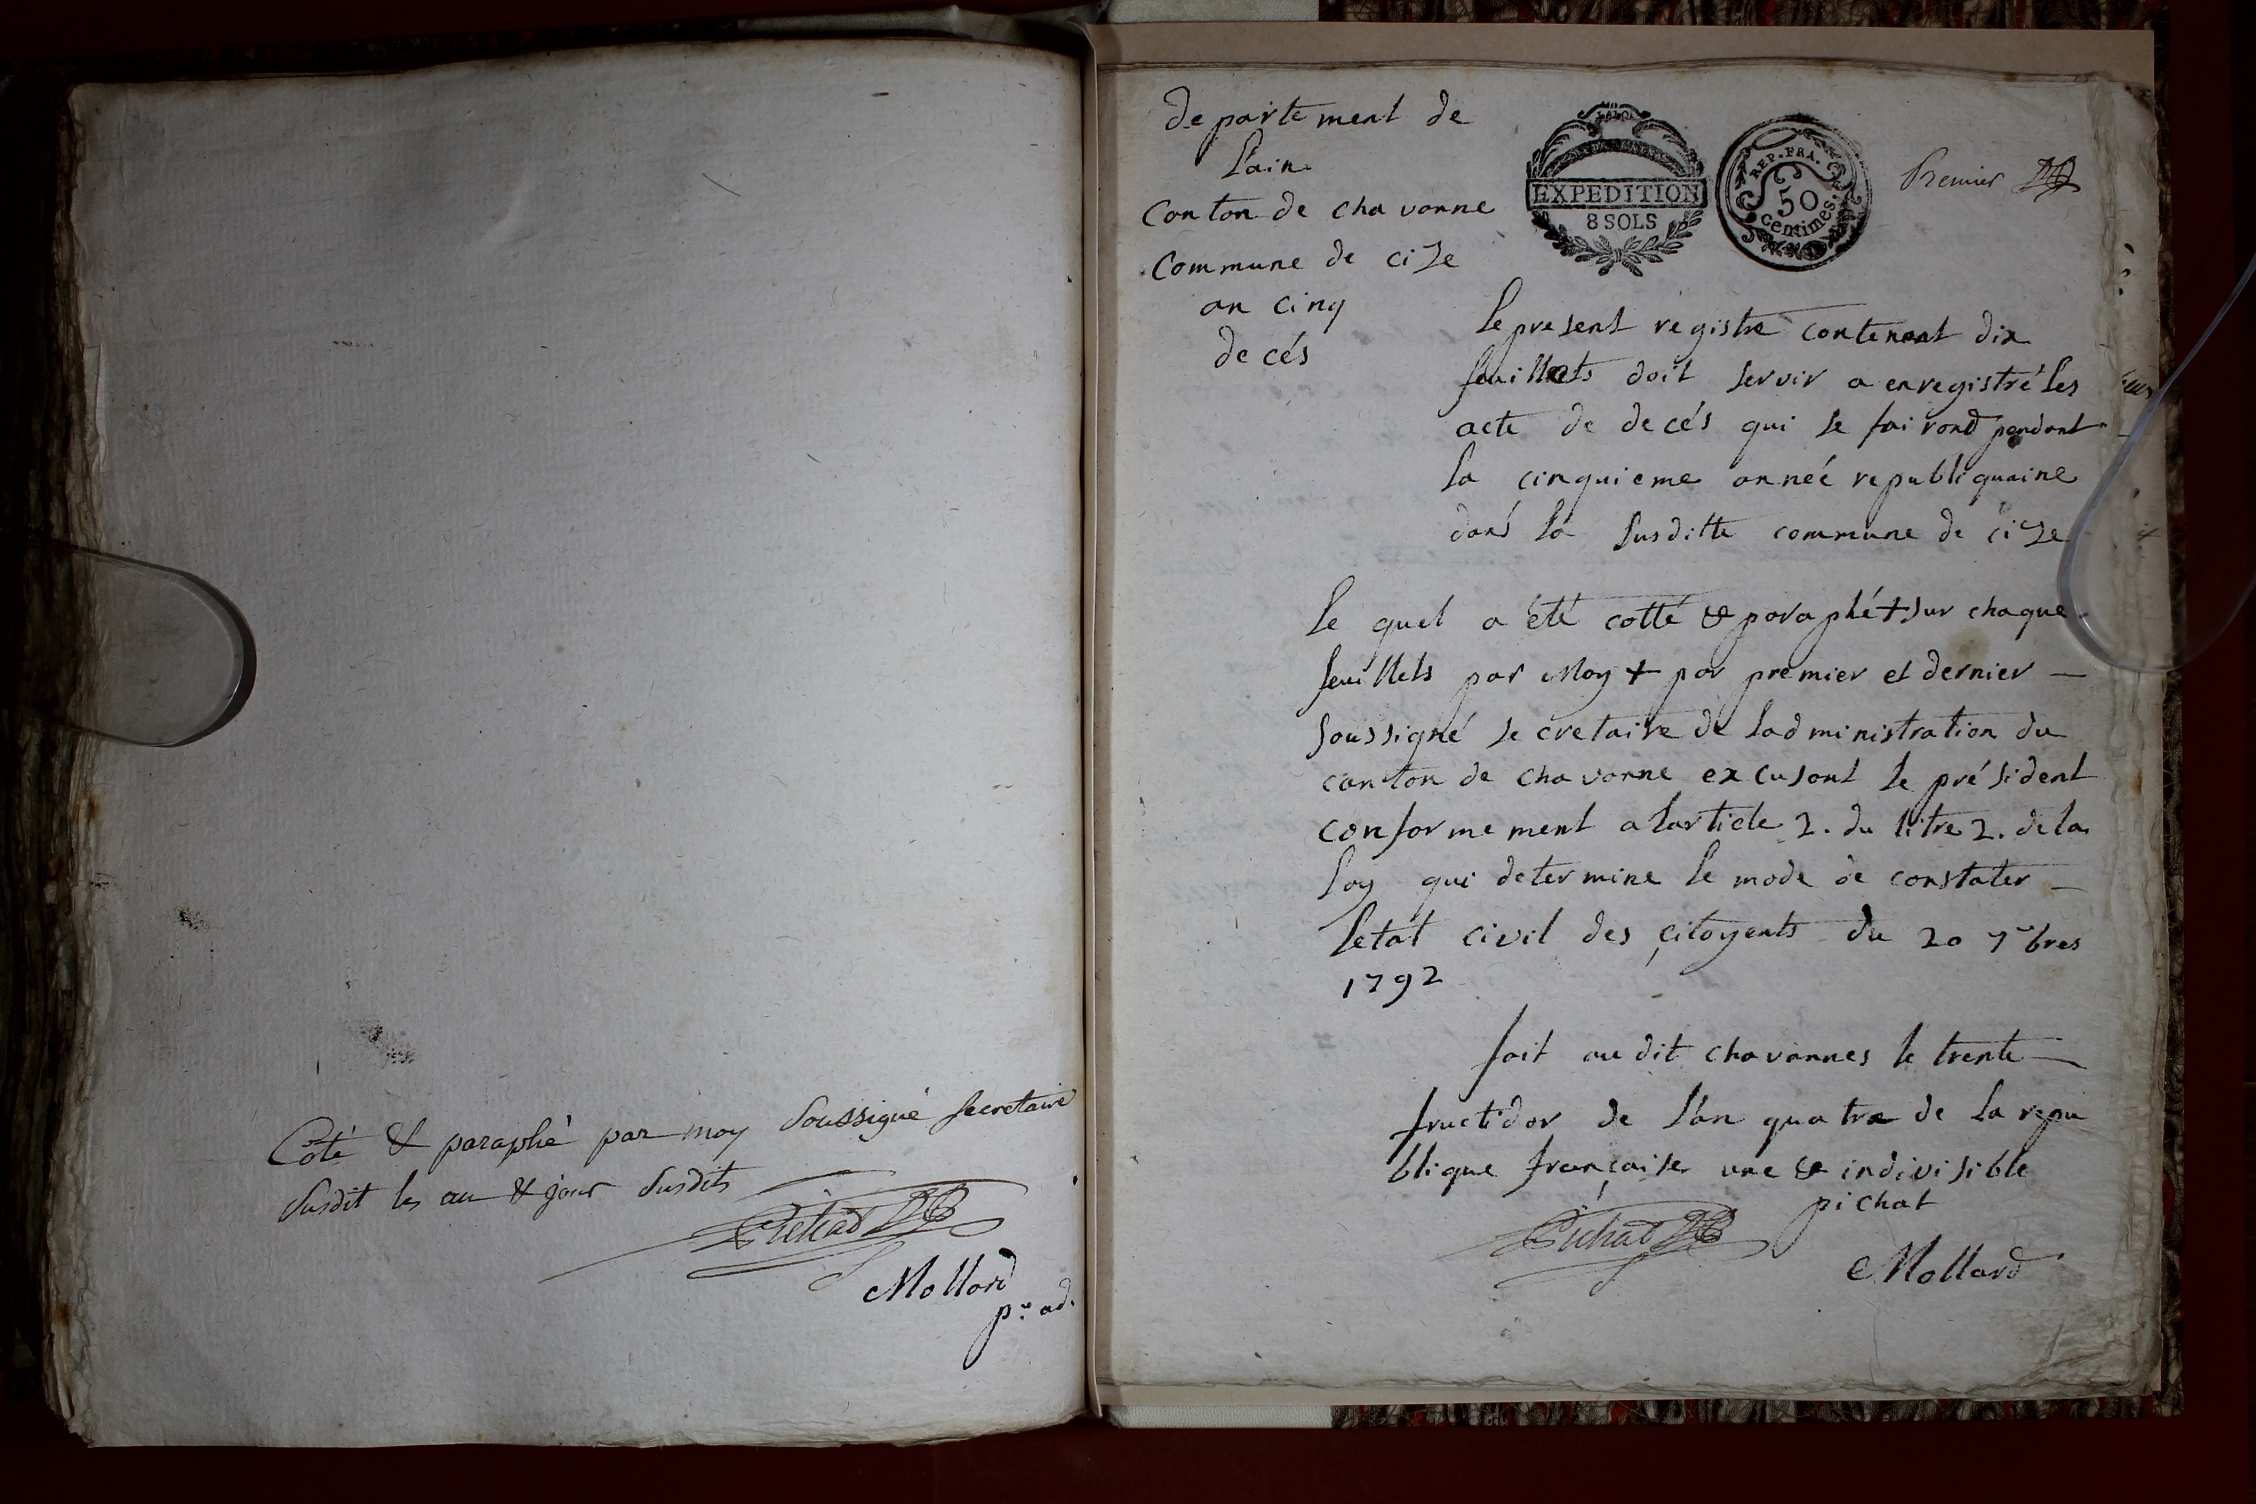 Coté & paraphé par moy Soussigné Secretaire
Susdit les an & jour Susdits
Pichat
Mollard
pr. ad.
departement de
Lain
Canton de chavanne
Commune de cize
an cinq
decés
EXPEDITION
8 SOLS
REP. FRA.
50
centimes.
Premier
Le present régistre contenant dix
feuillets doit servir a enregistré les
acte de decés qui se fairond pendant
la cinquieme anneé republiquaine
dans la susditte commune de cize
Le quel a été cotté & paraphé + sur chaque
feuillets par Moy + par premier et dernier —
Soussigné secretaire de Ladministration du
canton de chavanne excusant le président
conformement a Larticle 2. du titre 2. de la
Loy qui determine le mode de constater —
Letat civil des citoyents du 20 7bres
1792
fait audit chavannes le trente
fructidor de L'an quatre de la repu
blique française une & indivisible
pichat
Pichat
Mollard